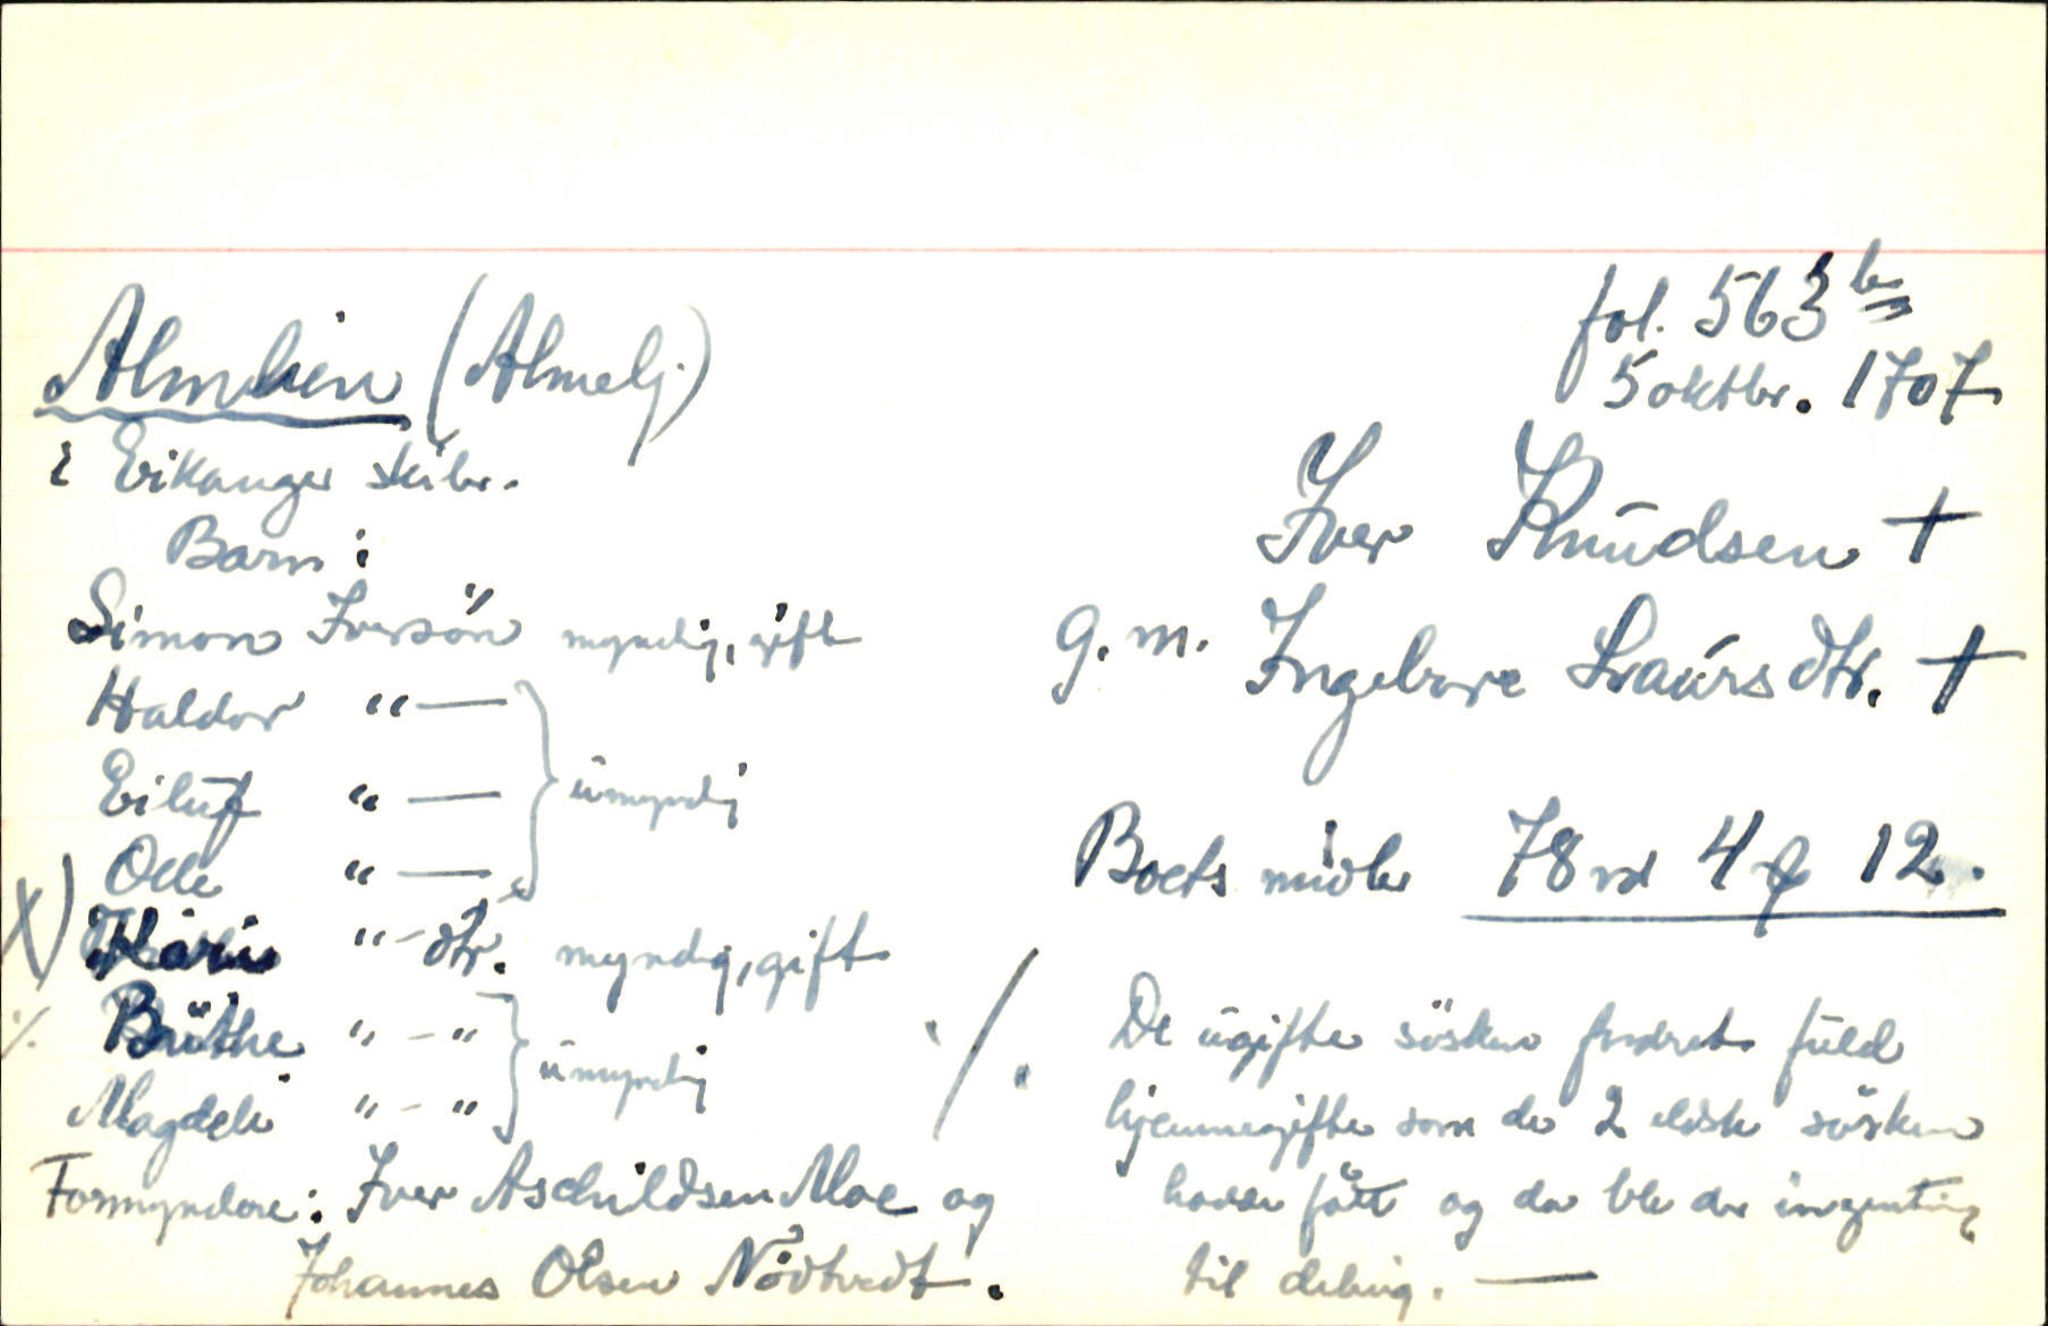 Almelien (Almelj.)
i Eikanger skibr.
Barn:
Simon Iversön myndig, gift
Haldor " —
Eiluf " — } umyndig
Olle " —
X) Kari " - dtr. myndig, gift
./. Brithe " - "
Magdeli " - " } umyndig
Formyndere: Iver Aschildsen Moe og
Johannes Olsen Nödtvedt.
fol. 563 b
5 oktbr. 1707
Iver Knudsen +
g. m. Ingeborg Laursdtr. +
Boets midler 78 rd 4 ƒ 12.
./. De ugifte sösken fordret fuld
hjemmegifte som de 2 eldste sösken
hadde fått og da ble der ingenting
til deling. —